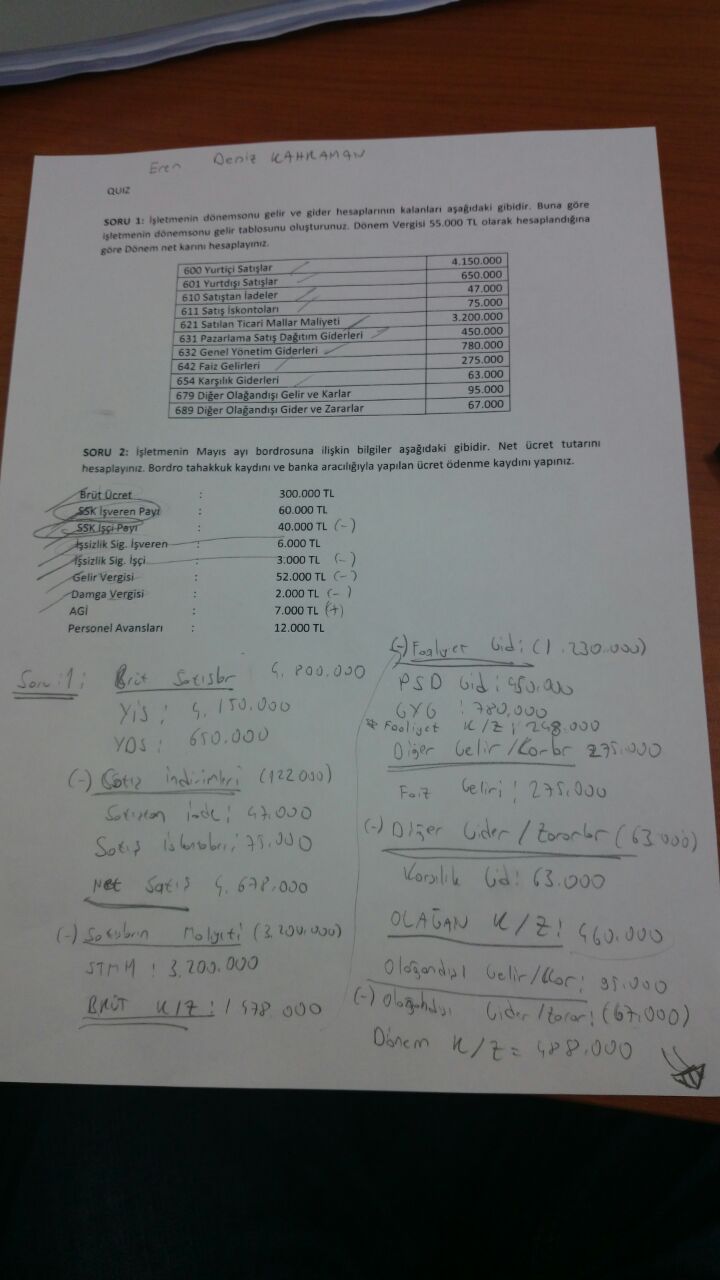 Eren Deniz KAHRAMAN
QUIZ
SORU 1: İşletmenin dönemsonu gelir ve gider hesaplarının kalanları aşağıdaki gibidir. Buna göre
işletmenin dönemsonu gelir tablosunu oluşturunuz. Dönem Vergisi 55.000 TL olarak hesaplandığına
göre Dönem net karını hesaplayınız.
600 Yurtiçi Satışlar 4.150.000
601 Yurtdışı Satışlar 650.000
610 Satıştan İadeler 47.000
611 Satış İskontoları 75.000
621 Satılan Ticari Mallar Maliyeti 3.200.000
631 Pazarlama Satış Dağıtım Giderleri 450.000
632 Genel Yönetim Giderleri 780.000
642 Faiz Gelirleri 275.000
654 Karşılık Giderleri 63.000
679 Diğer Olağandışı Gelir ve Karlar 95.000
689 Diğer Olağandışı Gider ve Zararlar 67.000
SORU 2: İşletmenin Mayıs ayı bordrosuna ilişkin bilgiler aşağıdaki gibidir. Net ücret tutarını
hesaplayınız. Bordro tahakkuk kaydını ve banka aracılığıyla yapılan ücret ödenme kaydını yapınız.
Brüt Ücret : 300.000 TL
SSK İşveren Payı : 60.000 TL
SSK İşçi Payı : 40.000 TL (-)
İşsizlik Sig. İşveren : 6.000 TL
İşsizlik Sig. İşçi : 3.000 TL (-)
Gelir Vergisi : 52.000 TL (-)
Damga Vergisi : 2.000 TL (-)
AGİ : 7.000 TL (+)
Personel Avansları : 12.000 TL
Soru:1; Brüt Satışlar 4.800.000
YİS : 4.150.000
YDS : 650.000
(-) Satış indirimleri (122.000)
Satıştan iade : 47.000
Satış iskontoları : 75.000
Net Satış 4.678.000
(-) Satışların Maliyeti (3.200.000)
STMM : 3.200.000
BRÜT K/Z : 1.478.000
(-) Faaliyet Gid : (1.230.000)
PSD Gid : 450.000
GYG : 780.000
* Faaliyet K/Z : 248.000
Diğer Gelir/Karlar 275.000
Faiz Geliri : 275.000
(-) Diğer Gider/Zararlar (63.000)
Karşılık Gid : 63.000
OLAĞAN K/Z : 460.000
Olağandışı Gelir/Kar : 95.000
(-) Olağandışı Gider/Zarar : (67.000)
Dönem K/Z = 488.000